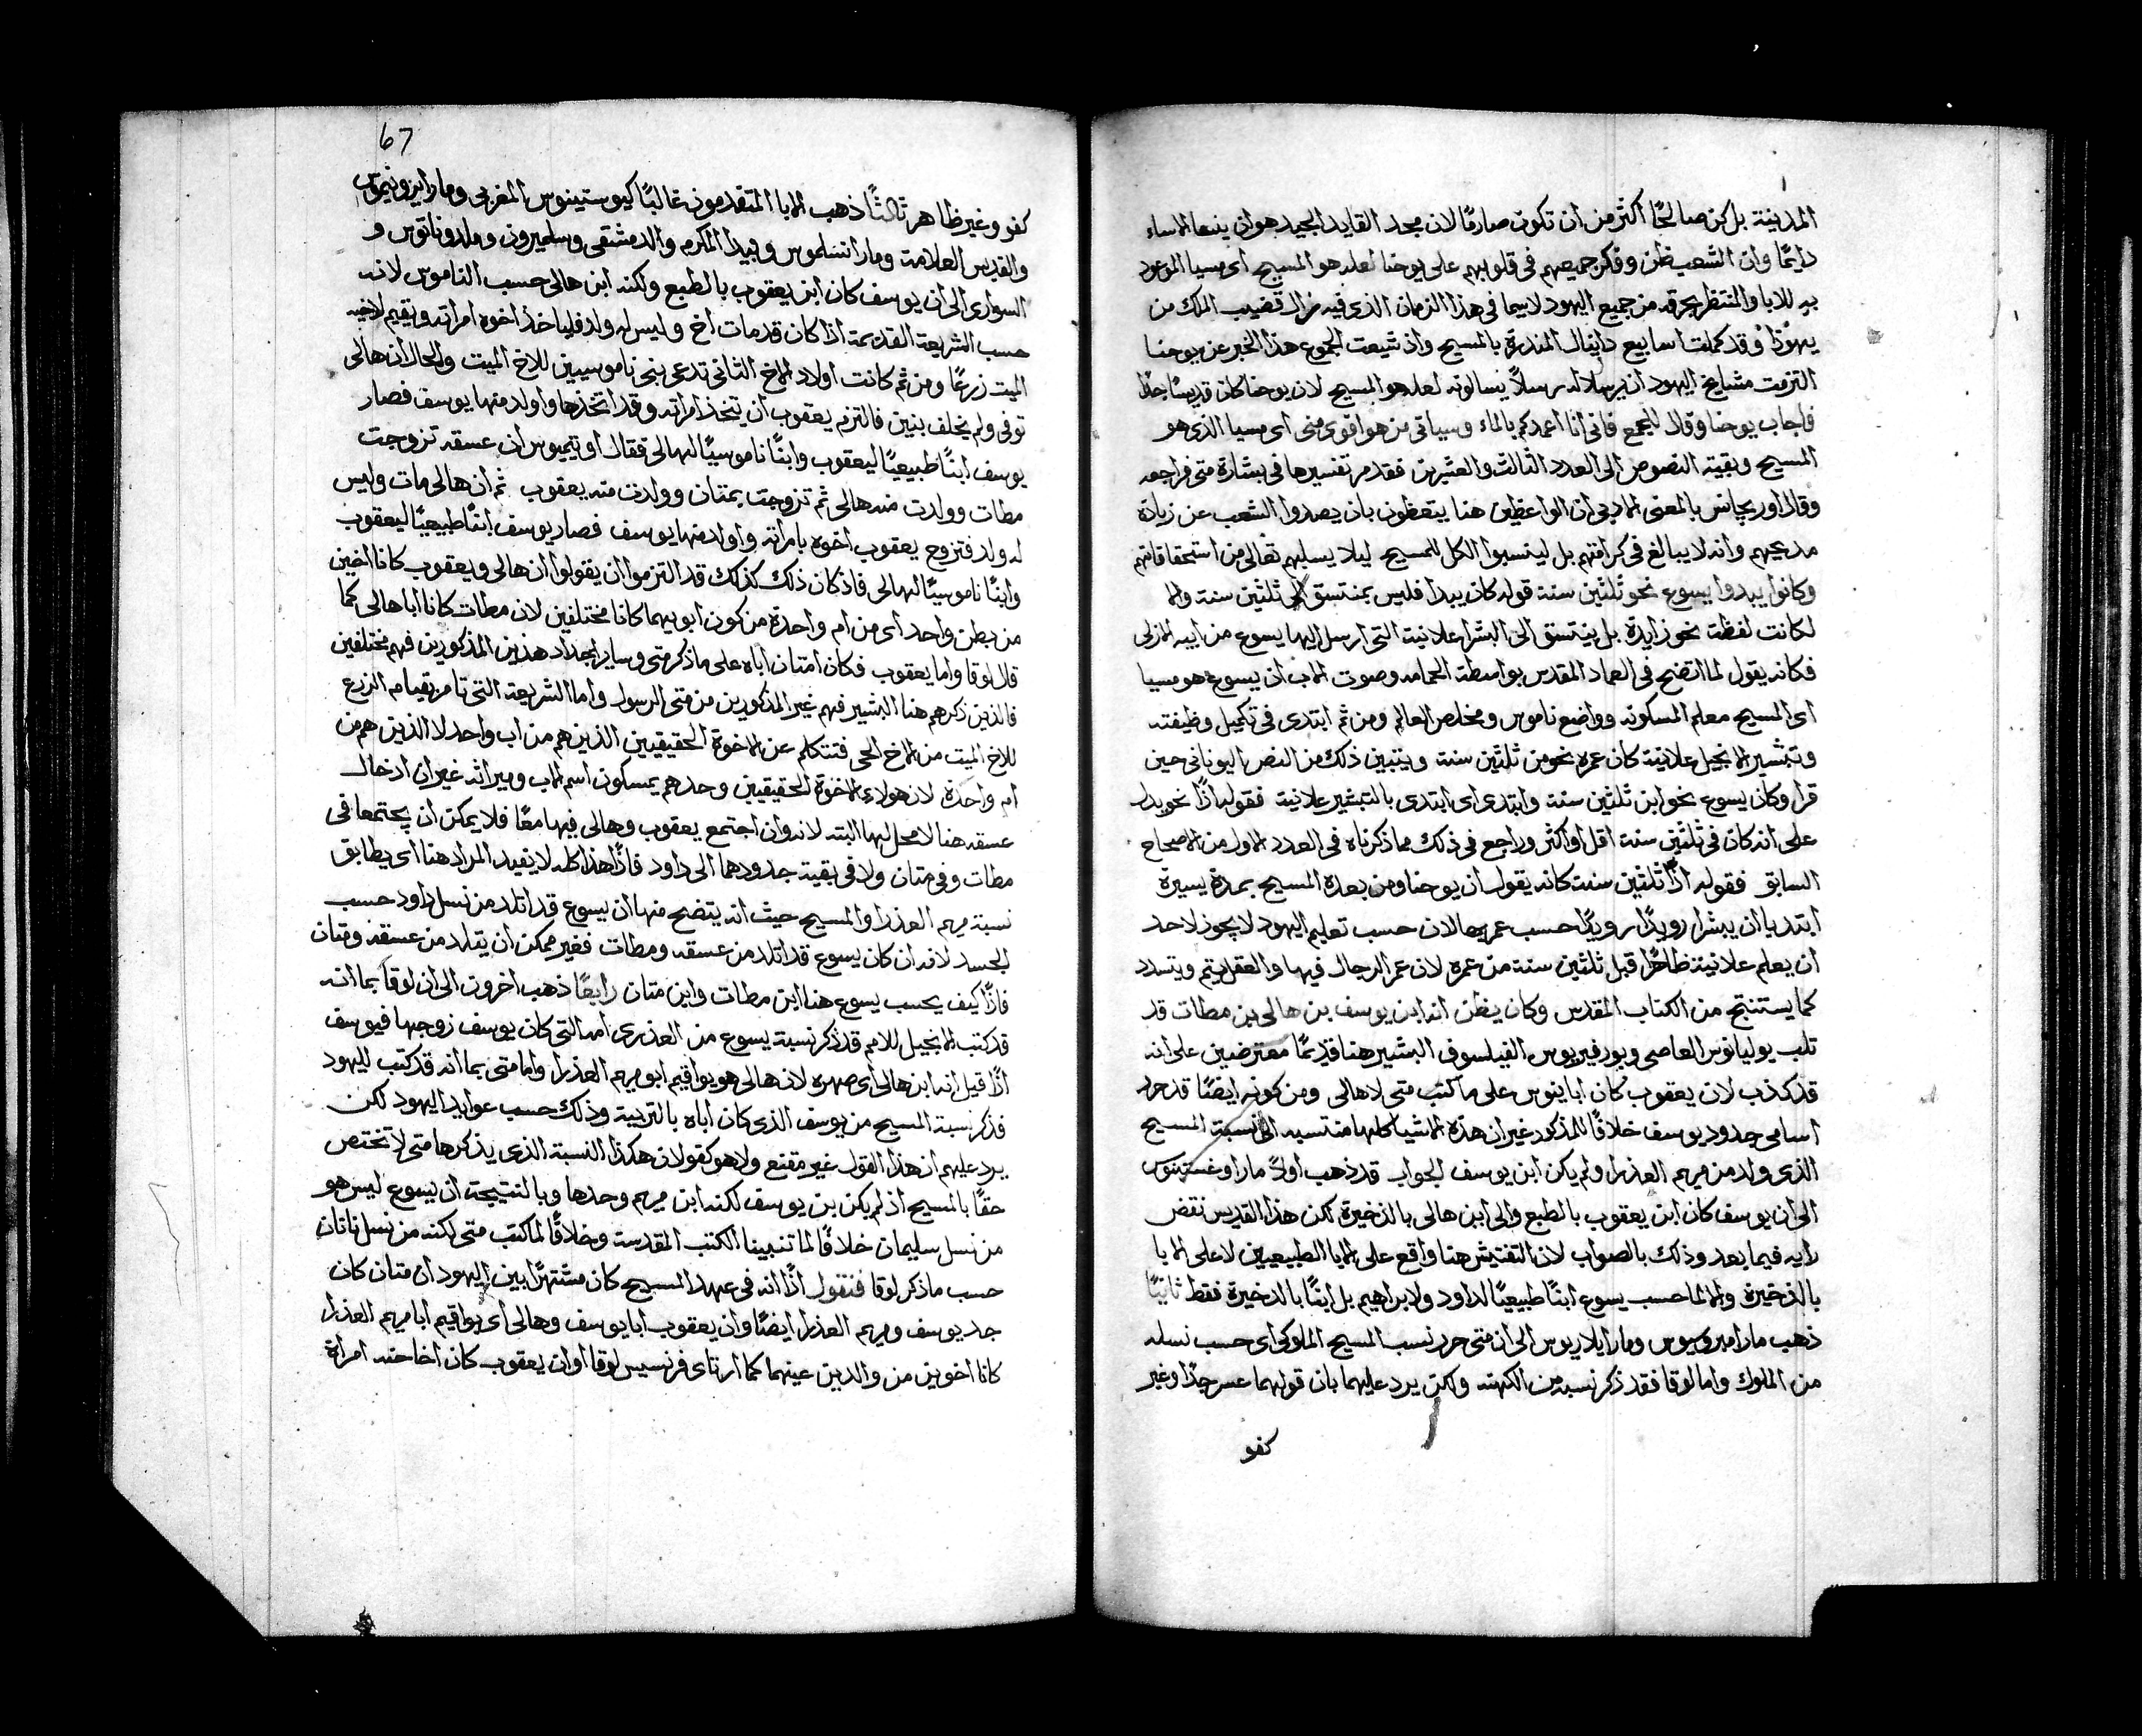 المدينة بل كن صالحًا أكثر من ان تكون صارمًا لان مجد القايد المجيد هو ان يمنعها الاساء
دايمًا وان الشعب ظن وفكر جميعهم في قلوبهم على يوحنا لعله هو المسيح اى مسيا الموعود
به للابا والمنتظر بحرقه من جميع اليهود لاسيما في هذا الزمان الذى فيه زال قضيب الملك من
يهوذا وقد كملت اسابيع دانيال المنذرة بالمسيح واذ شيعت الجموع هذا الخبر عن يوحنا
التزمت مشايخ اليهود ان يرسلا له رسلاً يسالونه لعله هو المسيح لان يوحنا كان قديسًا جدًا
فاجاب يوحنا وقال للجمع فانى انا اعمدكم بالماء وسياتى من هو اقوى منى اى مسيا الذى هو
المسيح وبقية النصوص الى العدد الثالث والعشرين فقد مر تفسيرها في بشارة متى فراجعه
وقال اوريجانس بالمعنى الادبى ان الواعظين هنا يتعظون بان يصدوا الشعب عن زيادة
مديحهم وانه لا يبالغ في كرامتهم بل لينسبوا الكل للمسيح ليلا يسلبهم تعالى من استحقاقاتهم
وكانوا يبدوا يسوع نحو ثلثين سنة قوله كان يبدا فليس بمنتسق الى ثلثين سنة والا
لكانت لفظة نحو زايدة بل ينتسق الى البشرا علانية التى ارسل اليها يسوع من ابيه الازلى
فكانه يقول لما اتضح في العماد المقدس بواسطة الحمامه وصوت الاب ان يسوع هو مسيا
اى المسيح معلم المسكونه وواضع ناموس ومخلص العالم ومن ثم ابتدى في تكميل وظيفته
وتبشير الانجيل علانية كان عمره نحو من ثلثين سنة ويتبين ذلك من النص اليونانى حين
قرا وكان يسوع نحو ابن ثلثين سنة وابتدى اى ابتدى بالتبشير علانية فقوله اذًا نحو يدل
على انه كان في ثلثين سنة اقل او اكثر وراجع في ذلك مما ذكرناه في العدد الاول من الاصحاح
السابق فقوله اذًا ثلثين سنة كانه يقول ان يوحنا ومن بعده المسيح بمدة يسيرة
ابتديا ان يبشرا رويدًا رويدًا حسب عمرهما لان حسب تعليم اليهود لا يجوز لاحد
ان يعلم علانية ظاهرًا قبل ثلثين سنة من عمره لان عمر الرجال فيها والعقل يتم ويتسدد
كما يستنتج من الكتاب المقدس وكان يظن انه ابن يوسف بن هالى بن مطات قد
ثلب يوليانوس العاصى وبورفيريوس الفيلسوف البشير هنا قديمًا معترضين على انه
قد كذب لان يعقوب كان ابا يوس على ما كتب متى لا هالى ومن كونه ايضًا قد حرر
اسامى جدود يوسف خلافًا للمذكور غير ان هذه الاشيا كلها منتسبه الى نسبة المسيح
الذى ولد من مريم العذرا ولم يكن ابن يوسف الجواب قد ذهب اولاً مار اوغسطينوس
الى ان يوسف كان ابن يعقوب بالطبع والى ابن هالى بالذخيرة لكن هذا القديس نقض
رايه فيما بعد وذلك بالصواب لان التفتيش هنا واقع على الابا الطبيعيين لا على الابا
بالذخيرة والا لما حسب يسوع ابنًا طبيعيًا لداود ولابراهيم بل ابنًا بالذخيرة فقط ثانيًا
ذهب مار امبروسيوس ومار ايلاريوس الى ان متى حرر نسب المسيح الملوكى اى حسب نسله
من الملوك واما لوقا فقد ذكر نسبه من الكهنة ولكن يرد عليهما بان قولهما عسر جدًا وغير
كفو
67
كفو وغير ظاهر ثالثًا ذهب الابا المتقدمون غالبًا كيوستينوس المغربى ومار ايرونيموس
والقديس العلامة ومار انسلموس وبيدا المكرم والدمشقى وسلميرون وملدوناتوس و
السوارى الى ان يوسف كان ابن يعقوب بالطبع ولكنه ابن هالى حسب الناموس لانه
حسب الشريعة القديمة اذا كان قد مات اخ وليس له ولد فلياخذ اخوه امراته ويقيم لاخيه
الميت زرعًا ومن ثم كانت اولاد الاخ الثانى تدعى بنى ناموسيين للاخ الميت والحال ان هالى
توفى ولم يخلف بنين فالتزم يعقوب ان يتخذ امراته وقد اتخذها واولد منها يوسف فصار
يوسف ابنًا طبيعيًا ليعقوب وابنًا ناموسيًا لهالى فقال اوتيميوس ان عسقه تزوجت
مطات وولدت منه هالى ثم تزوجت بمتان وولدت منه يعقوب ثم ان هالى مات وليس
له ولد فتزوج يعقوب اخوه بامرأته واولد منها يوسف فصار يوسف ابنًا طبيعيًا ليعقوب
وابنًا ناموسيًا لهالى فاذ كان ذلك كذلك قد التزموا ان يقولوا ان هالى ويعقوب كانا اخين
من بطن واحد اى من ام واحدة من كون ابويهما كانا مختلفين لان مطات كانا ابا هالى كما
قال لوقا واما يعقوب فكان امتان اباه على ما ذكر متى وساير اجداد هذين المذكورين فهم مختلفين
فالذين ذكرهم هنا البشير فهم غير المذكورين من متى الرسول واما الشريعة التى تامر بقيام الزرع
للاخ الميت من الاخ الحى فتتكلم عن الاخوة الحقيقيين الذين هم من اب واحد لا الذين هم من
ام واحدة لان هولاء الاخوة الحقيقيين وحدهم يمسكون اسم الاب وميراثه غير ان ادخال
عسقه هنا لا محل لها البته لانه وان اجتمع يعقوب وهالى فيها معًا فلا يمكن ان يجتمعا في
مطات وفى متان ولا في بقية جدودهما الى داود فاذًا هذا كله لا يفيد المراد هنا اى يطابق
نسبة مريم العذرا والمسيح حيث انه يتضح منها ان يسوع قد اتلد من نسل داود حسب
الجسد لانه ان كان يسوع قد اتلد من عسقه ومطات فغير ممكن ان يتلد من عسقه ومتان
فاذًا كيف يحسب يسوع هنا ابن مطات وابن متان رابعًا ذهب اخرون الى ان لوقا بما انه
قد كتب الانجيل للامم قد ذكر نسبة يسوع من العذرى امه التى كان يوسف زوجها فيوسف
اذًا قيل انه ابن هالى اى صهره لان هالى هو يواقيم ابو مريم العذرا واما متى بما انه قد كتب لليهود
فذكر نسبة المسيح من يوسف الذى كان اباه بالتربية وذلك حسب عوايد اليهود لكن
يرد عليهم ان هذا القول غير مقنع ولا هو كفو لان هكذا النسبة الذى يذكرها متى لا تختص
حقًا بالمسيح اذ لم يكن بن يوسف لكنه ابن مريم وحدها وبالنتيجة ان يسوع ليس هو
من نسل سليمان خلافًا لما تنبينا الكتب المقدسة وخلافًا لما كتب متى لكنه من نسل ناتان
حسب ما ذكر لوقا فنقول اذًا انه في عهد المسيح كان مشتهرًا بين اليهود ان متان كان
جد يوسف ومريم العذرا ايضًا وان يعقوب ابا يوسف وهالى اى يواقيم ابا مريم العذرا
كانا اخوين من والدين عينهما كما ارتاى فرنسيس لوقا او ان يعقوب كان اخا حنه امراة